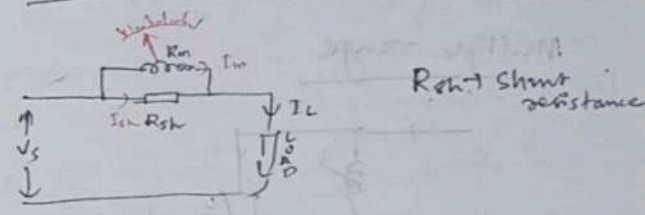 Rm
Im
Ish Rsh
IL
Vs
LOAD
Rsh → Shunt
resistance